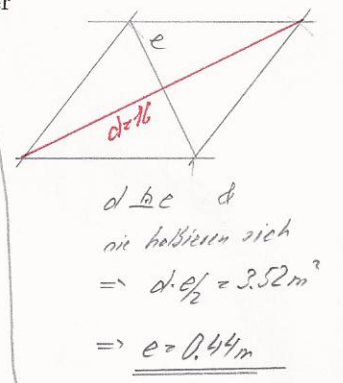 er
e
d=16
d ⊥ e &
sie halbieren sich
=> d·e/2 = 3.52 m²
=> e = 0.44 m